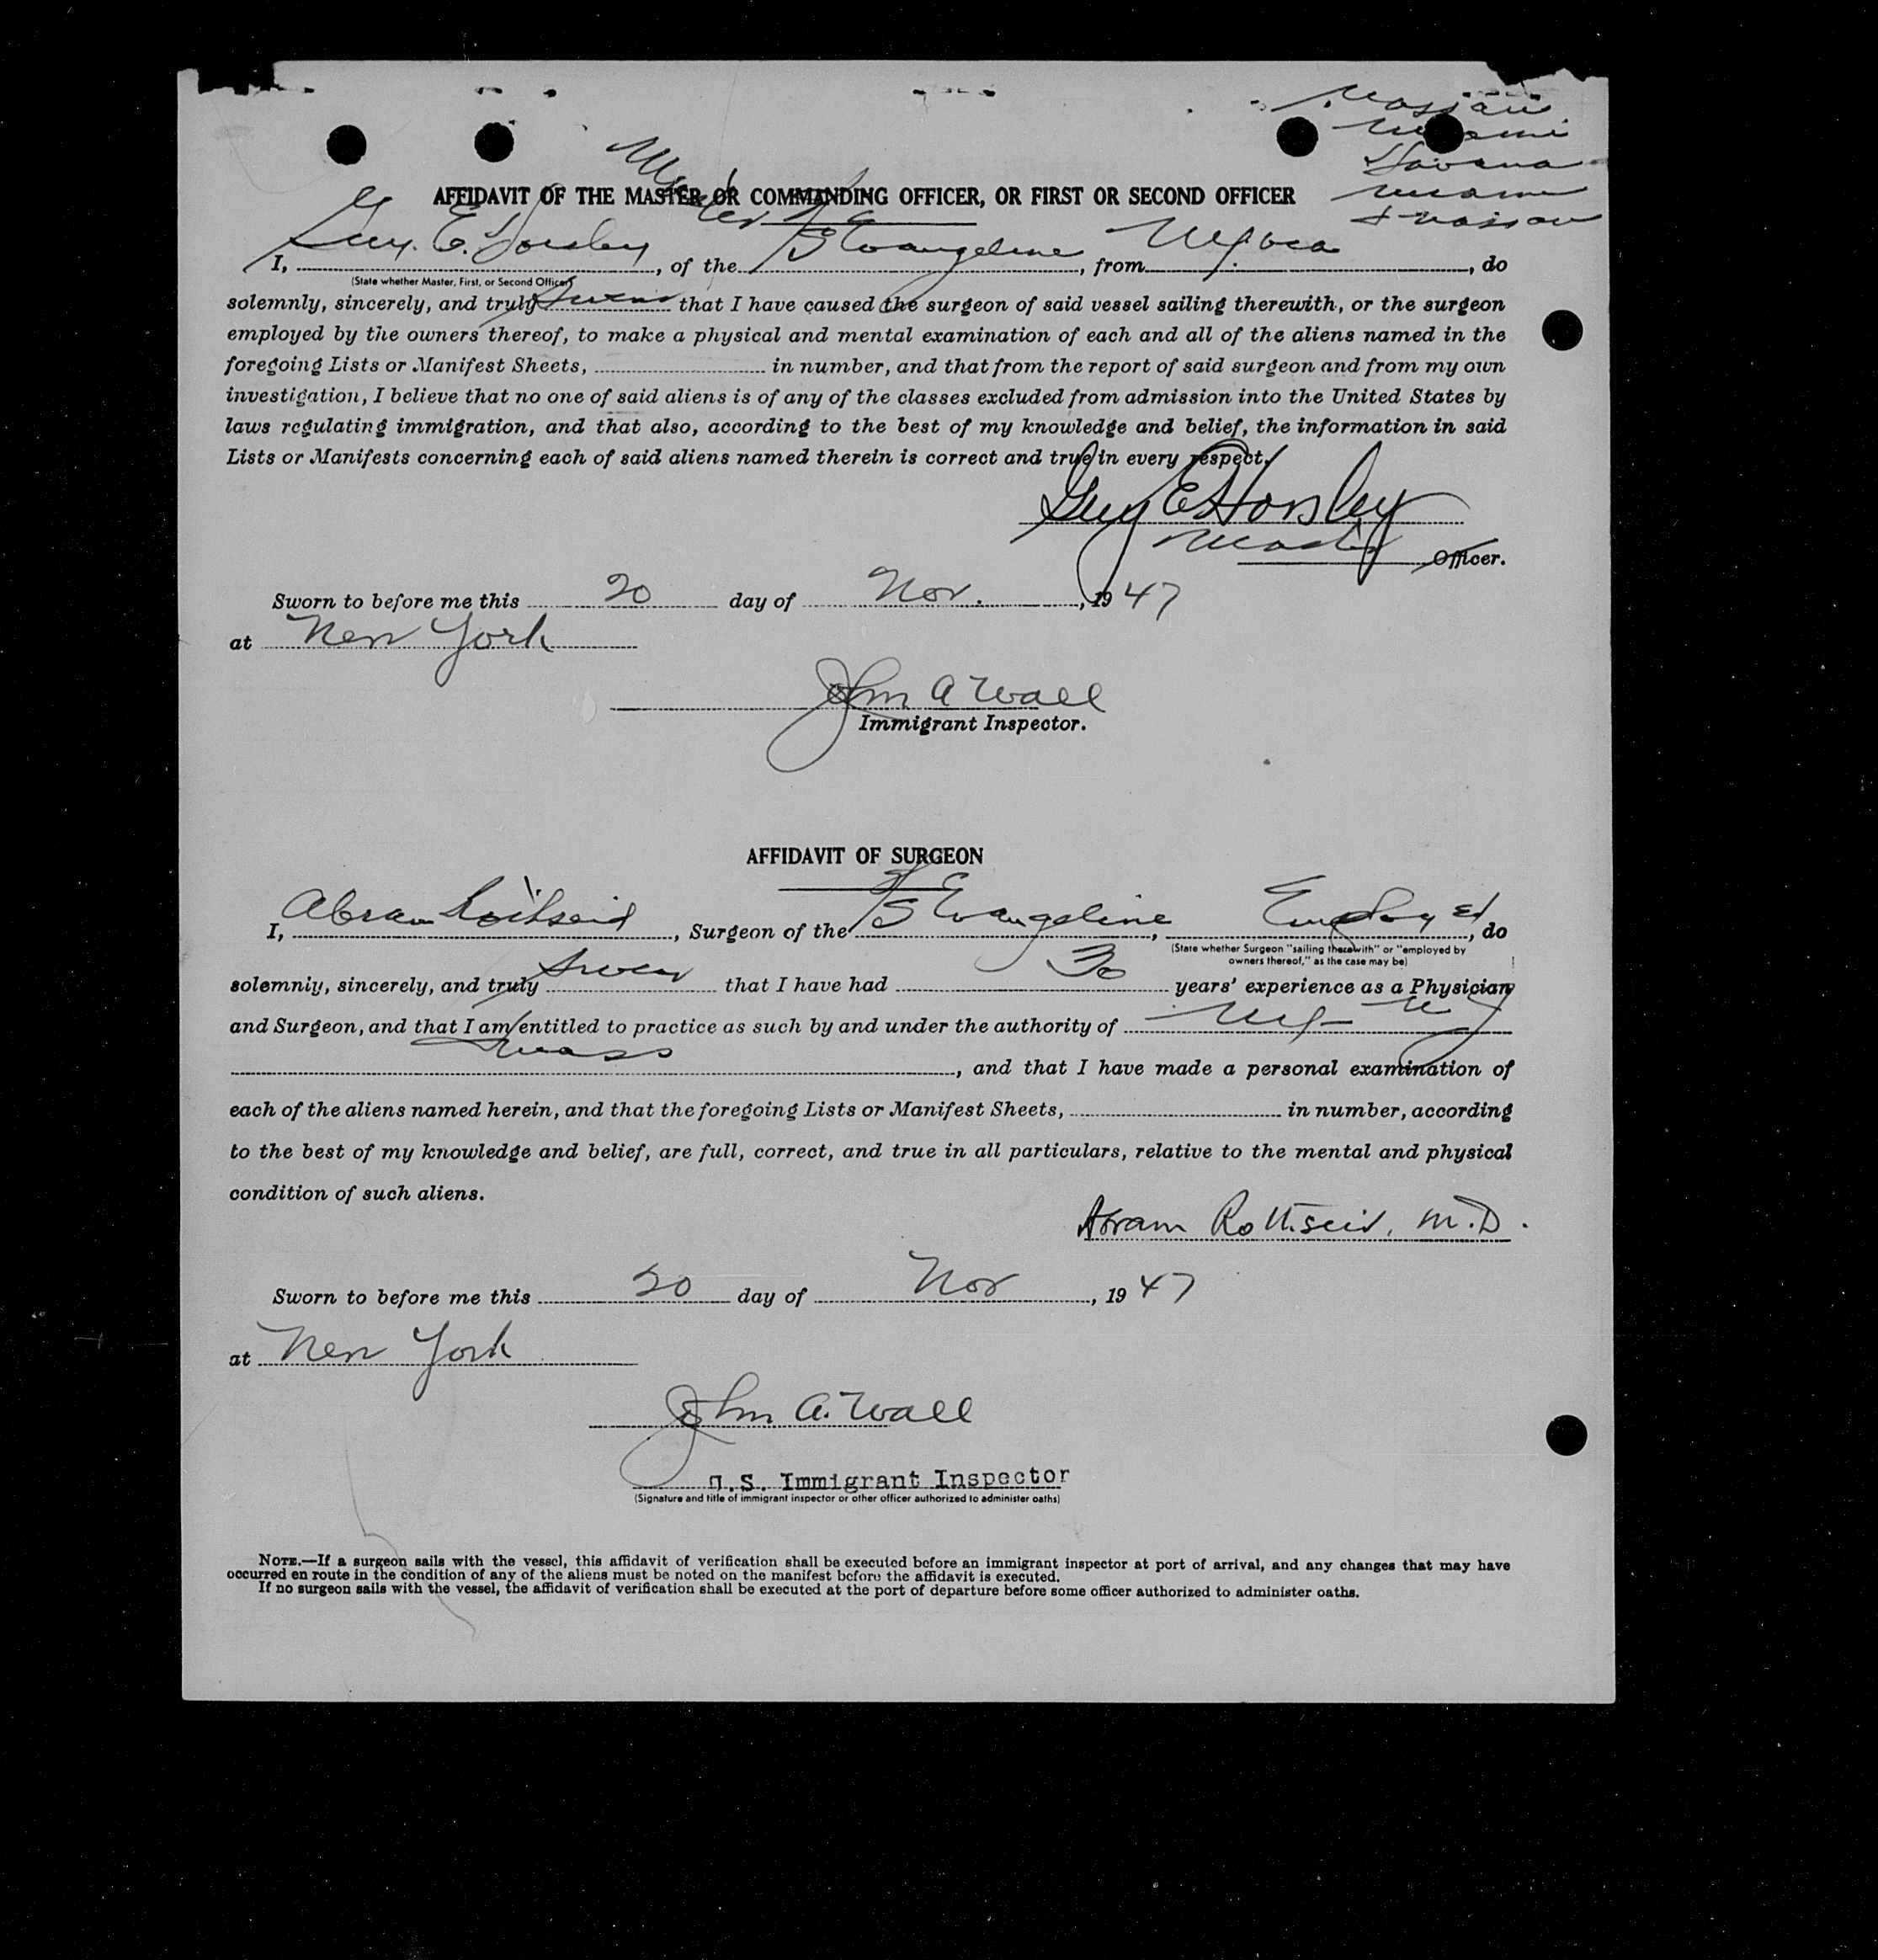 Nassau
Miami
Havana
Miami
& Nassau
Master
AFFIDAVIT OF THE MASTER OR COMMANDING OFFICER, OR FIRST OR SECOND OFFICER
I, Guy. E. Horsley, of the S/S Evangeline, from, do
(State whether Master, First, or Second Officer)
solemnly, sincerely, and truly swear that I have caused the surgeon of said vessel sailing therewith, or the surgeon
employed by the owners thereof, to make a physical and mental examination of each and all of the aliens named in the
foregoing Lists or Manifest Sheets, in number, and that from the report of said surgeon and from my own
investigation, I believe that no one of said aliens is of any of the classes excluded from admission into the United States by
laws regulating immigration, and that also, according to the best of my knowledge and belief, the information in said
Lists or Manifests concerning each of said aliens named therein is correct and true in every respect.
Guy E Horsley
Master Officer.
Sworn to before me this 20 day of Nov., 1947
at New York
John A Wall
Immigrant Inspector.
AFFIDAVIT OF SURGEON
I, Abram, Surgeon of the S/S Evangeline, Employed, do
(State whether Surgeon "sailing therewith" or "employed by
owners thereof," as the case may be)
solemnly, sincerely, and truly swear that I have had 30 years' experience as a Physician
and Surgeon, and that I am entitled to practice as such by and under the authority of
Mass, and that I have made a personal examination of
each of the aliens named herein, and that the foregoing Lists or Manifest Sheets, in number, according
to the best of my knowledge and belief, are full, correct, and true in all particulars, relative to the mental and physical
condition of such aliens.
Abram M.D.
Sworn to before me this 20 day of Nov, 1947
at New York
John A. Wall
U.S. Immigrant Inspector
(Signature and title of immigrant inspector or other officer authorized to administer oaths)
NOTE.—If a surgeon sails with the vessel, this affidavit of verification shall be executed before an immigrant inspector at port of arrival, and any changes that may have
occurred en route in the condition of any of the aliens must be noted on the manifest before the affidavit is executed.
If no surgeon sails with the vessel, the affidavit of verification shall be executed at the port of departure before some officer authorized to administer oaths.